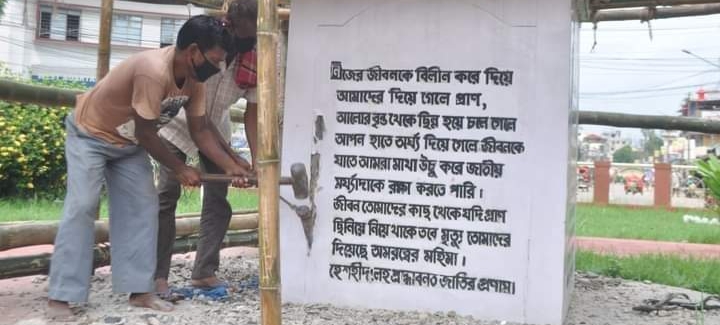 নিজের জীবনকে বিলীন করে দিয়ে
আমাদের দিয়ে গেলে প্রাণ,
আলোর বৃন্ত থেকে ছিন্ন হয়ে চলে গেলে
আপন হাতে অর্ঘ্য দিয়ে গেলে জীবনকে
যাতে আমরা মাথা উঁচু করে জাতীয়
মর্য্যাদাকে রক্ষা করতে পারি।
জীবন তোমাদের কাছ থেকে যদি প্রাণ
ছিনিয়ে নিয়ে থাকে তবে মৃত্যু তোমাদের
দিয়েছে অমরত্বের মহিমা।
হে শহীদ! লহ শ্রদ্ধাবনত জাতির প্রণাম।